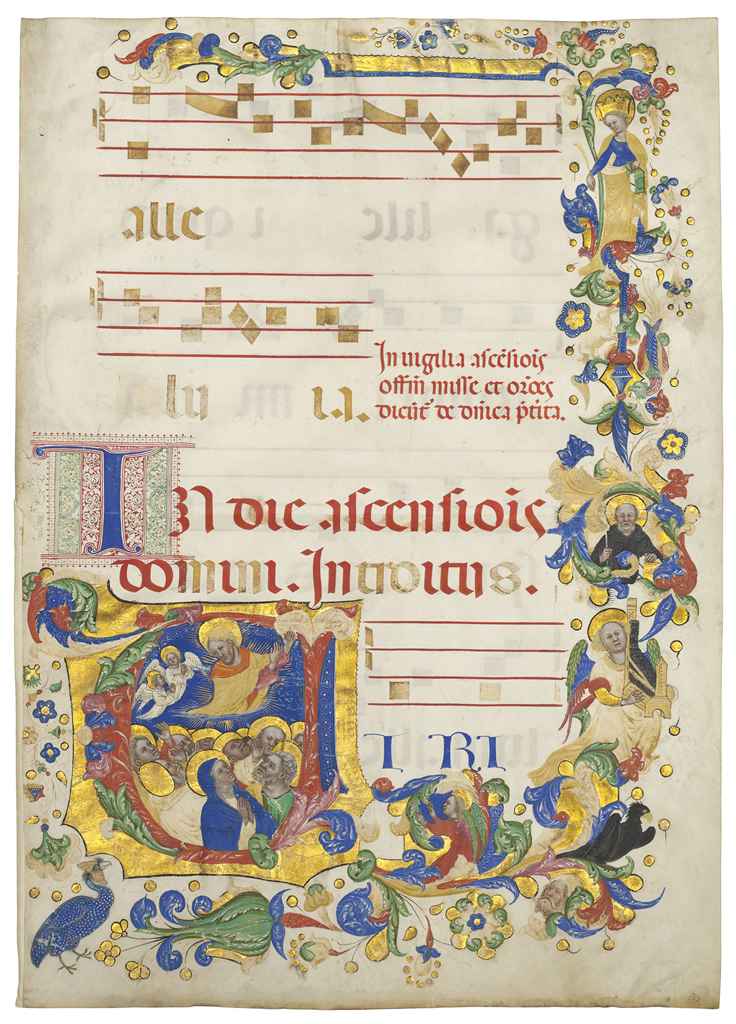 alle
lu ia.
In uigilia ascēsiois
offm̄ misse et orōes
dicūt de dn̄ica p̄tita.
IN die ascensiois̄
domini. Introitus.
VIRI